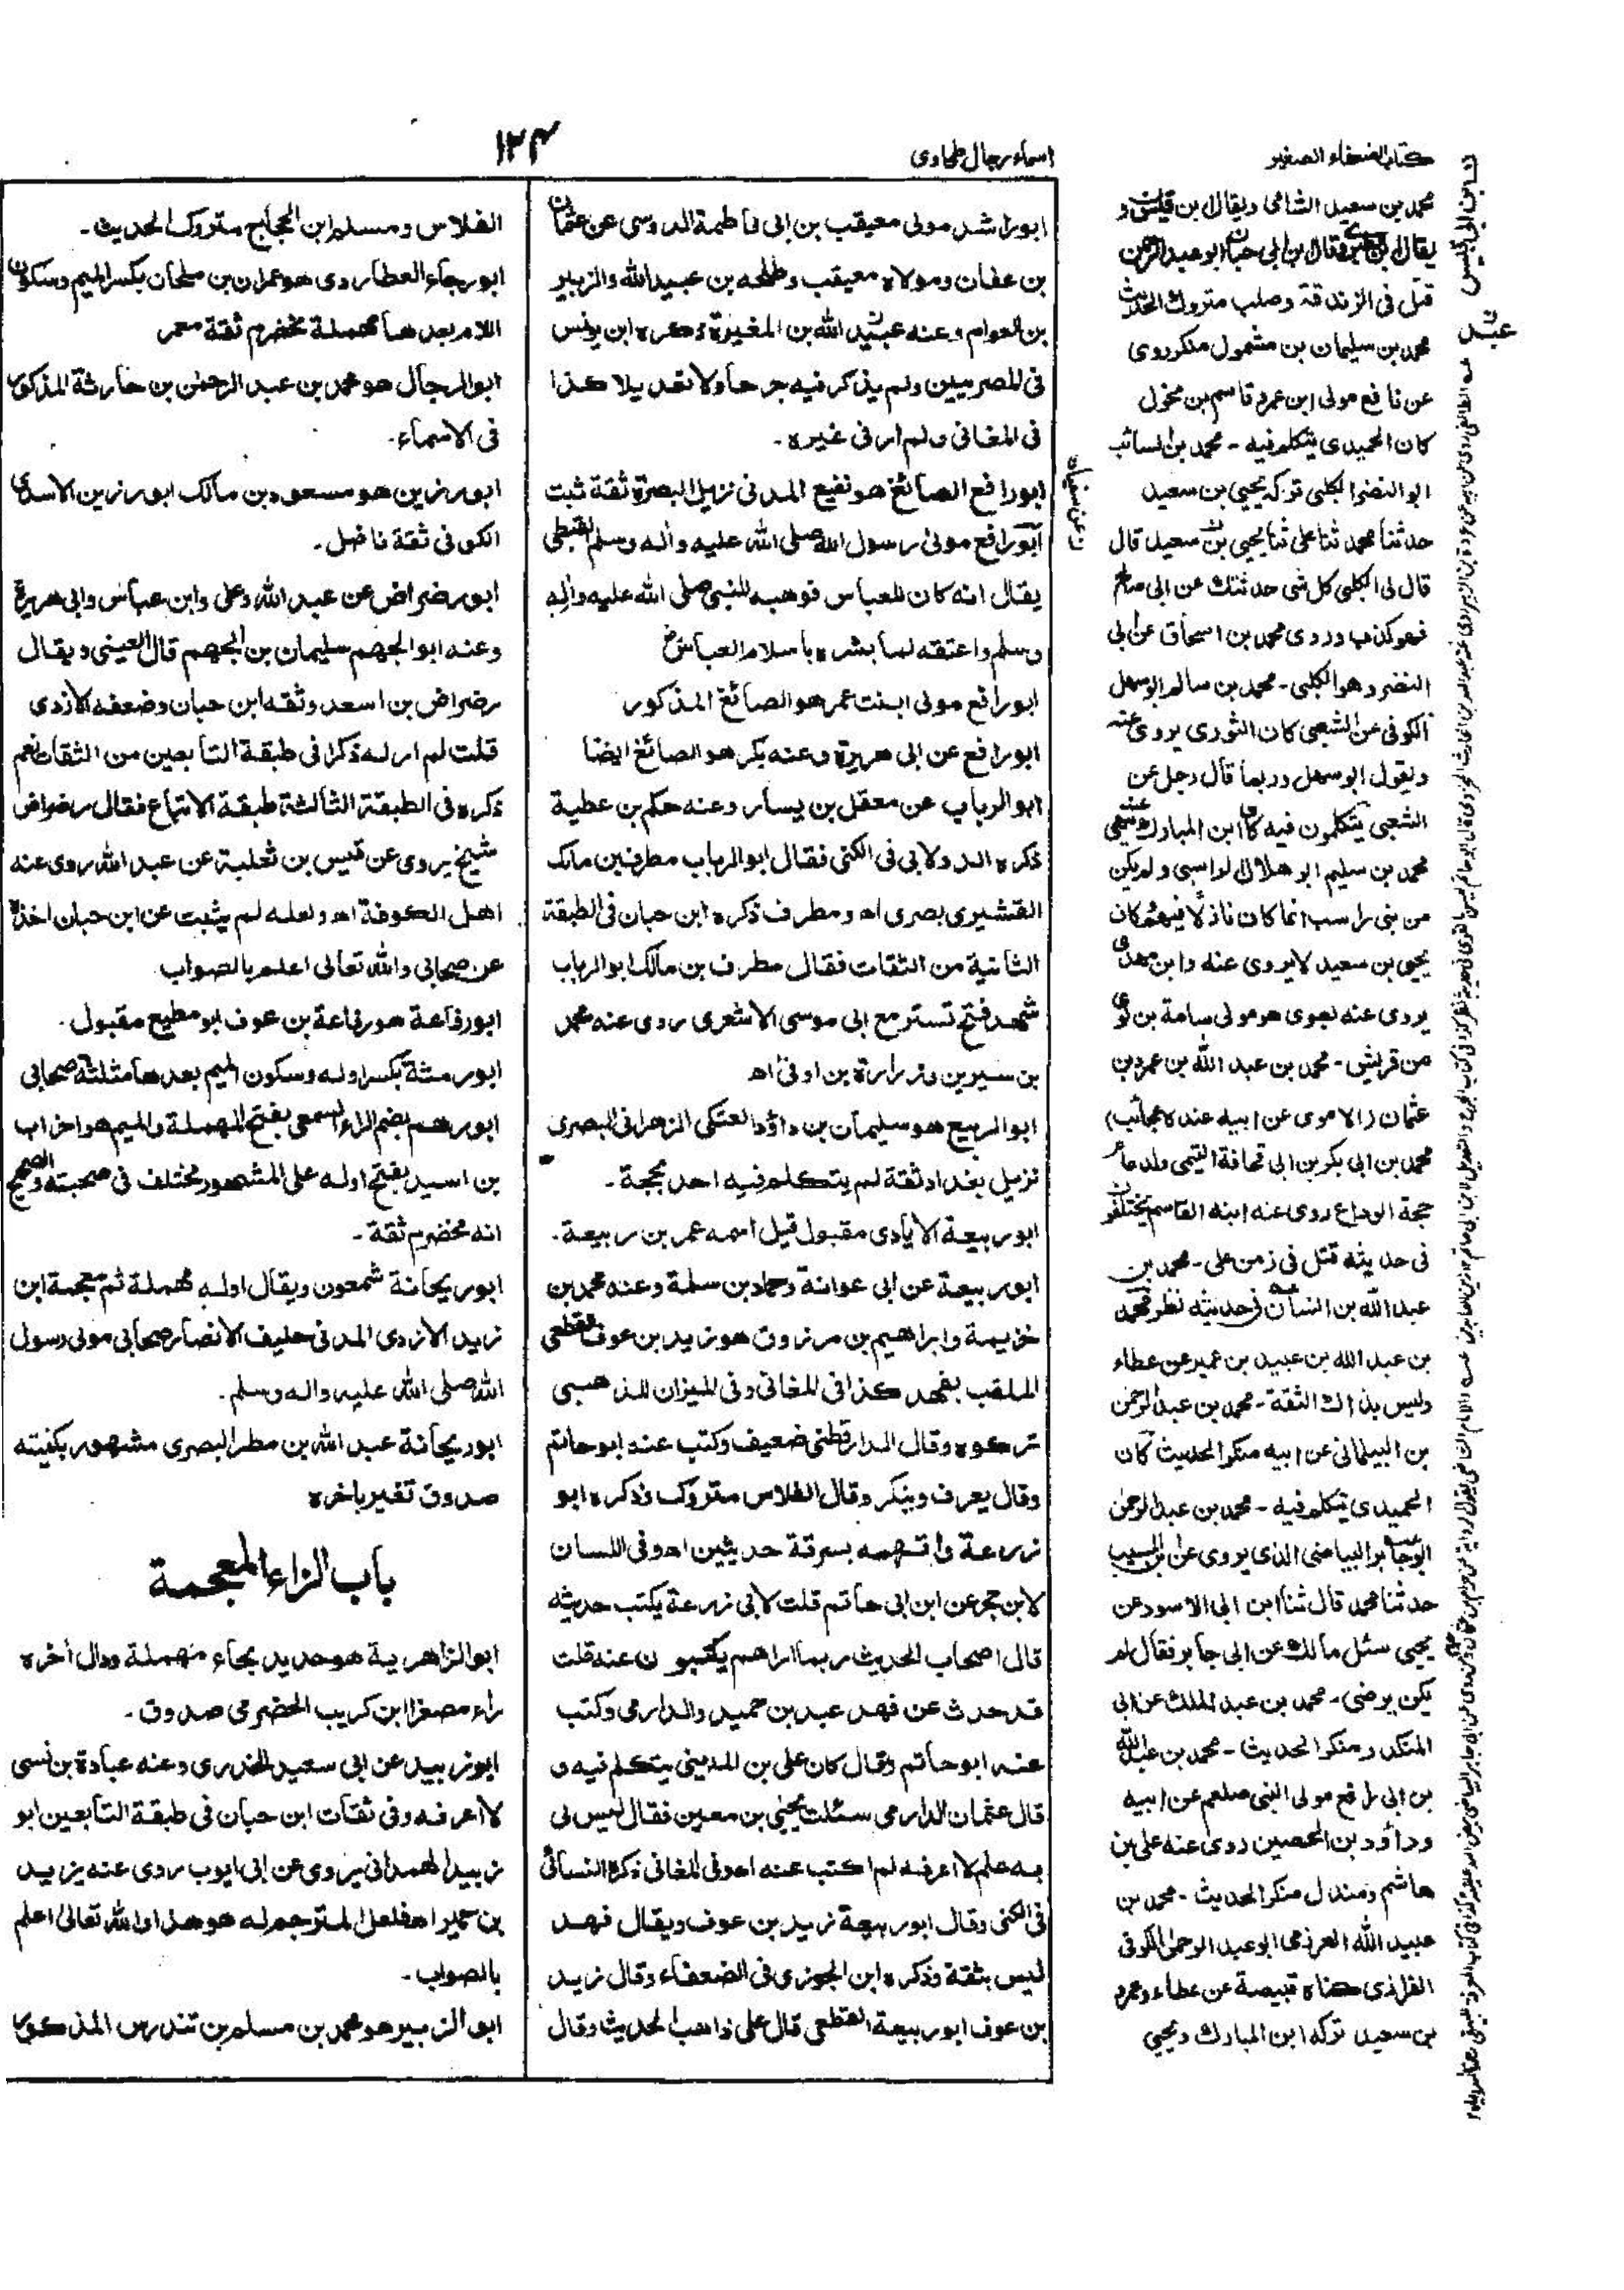 ۱۲۴
اسماء رجال طحاوی
كتاب الضعفاء الصغير
ابو راشد مولى معيقب بن ابى فاطمة الدوسى عن عثمان
بن عفان ومولاه معيقب وطلحه بن عبيد الله والزبير
بن العوام وعنه عبيد الله بن المغيرة ذكره ابن يونس
فى المصريين ولم يذكر فيه جرحا ولا تعديلا كذا
فى المغانى ولم ار فى غيره -
ابو رافع الصائغ هو نفيع المدنى نزيل البصرة ثقة ثبت
ابو رافع مولى رسول الله صلى الله عليه واله وسلم القبطى
يقال انه كان للعباس فوهبه للنبى صلى الله عليه واله
وسلم واعتقه لما بشره باسلام العباس
ابو رافع مولى ابنت عمر هو الصائغ المذكور
ابو رافع عن ابى هريرة وعنه بكر هو الصائغ ايضا
ابو الرباب عن معقل بن يسار وعنه حكم بن عطية
ذكره الدولابى فى الكنى فقال ابو الرباب مطرف بن مالك
القشيرى بصرى اه ومطرف ذكره ابن حبان فى الطبقة
الثانية من الثقات فقال مطرف بن مالك ابو الرباب
شهد فتح تستر مع ابى موسى الاشعرى روى عنه محمد
بن سيرين وزرارة بن اوفى اه
ابو الربيع هو سليمان بن داؤد العتكى الزهرانى البصرى
نزيل بغداد ثقة لم يتكلم فيه احد بحجة -
ابو ربيعة الأيادى مقبول قيل اسمه عمر بن ربيعة -
ابو ربيعة عن ابى عوانة وحماد بن سلمة وعنه محمد بن
خزيمة وابراهيم بن مرزوق هو زيد بن عوف القطعى
الملقب بفهد كذا فى المغانى وفى الميزان للذهبى
تركوه وقال الدارقطنى ضعيف وكتب عنه ابو حاتم
وقال يعرف وينكر وقال الفلاس متروك وذكره ابو
زرعة واتهمه بسرقة حديثين اه وفى اللسان
لابن حجر عن ابن ابى حاتم قلت لابى زرعة يكتب حديثه
قال اصحاب الحديث ربما اراهم يكتبون عنه قلت
قد حدث عن فهد عبد بن حميد والدارمى وكتب
عنه ابو حاتم وقال كان على بن المدينى يتكلم فيه و
قال عثمان الدارمى سئلت يحيى بن معين فقال ليس لى
به علم لا اعرفه لم اكتب عنه اه وفى المغانى ذكره النسائى
فى الكنى وقال ابو ربيعة زيد بن عوف ويقال فهد
ليس بثقة وذكره ابن الجوزى فى الضعفاء وقال زيد
بن عوف ابو ربيعة القطعى قال على ذاهب الحديث وقال
الفلاس ومسلم ابن الحجاج متروك الحديث -
ابو رجاء العطاردى هو عمران بن ملحان بكسر الميم وسكون
اللام بعدها مهملة مخضرم ثقة معمر
ابو الرجال هو محمد بن عبد الرحمن بن حارثة المذكور
فى الاسماء -
ابو رزين هو مسعود بن مالك ابو رزين الاسدى
الكوفى ثقة فاضل -
ابو رضراض عن عبد الله وعلى وابن عباس وابى هريرة
وعنه ابو الجهم سليمان بن الجهم قال العينى ويقال
رضراض بن اسعد وثقه ابن حبان وضعفه الازدى
قلت لم ار له ذكرا فى طبقة التابعين من الثقات نعم
ذكره فى الطبقة الثالثة طبقة الاتباع فقال رضراض
شيخ يروى عن قيس بن ثعلبة عن عبد الله روى عنه
اهل الكوفة اه ولعله لم يثبت عن ابن حبان اخذه
عن صحابى والله تعالى اعلم بالصواب
ابو رفاعة هو رفاعة بن عوف ابو مطيع مقبول -
ابو رمثة بكسر اوله وسكون الميم بعدها مثلثة صحابى
ابو رهم بضم الراء السمعى بفتح المهملة والميم هو احزاب
بن اسيد بفتح اوله على المشهور مختلف فى صحبته والصحيح
انه مخضرم ثقة -
ابو ريحانة شمعون ويقال اوله مهملة ثم معجمة ابن
زيد الازدى المدنى حليف الانصار صحابى مولى رسول
الله صلى الله عليه واله وسلم -
ابو ريحانة عبد الله بن مطر البصرى مشهور بكنيته
صدوق تغير باخره
باب الزاء المعجمة
ابو الزاهرية هو حدير بحاء مهملة ودال أخره
راء مصغرا ابن كريب الحضرمى صدوق -
ابو زبيد عن ابى سعيد الخدرى وعنه عبادة بن نسى
لا اعرفه وفى ثقات ابن حبان فى طبقة التابعين ابو
زبيد الهمدانى يروى عن ابى ايوب روى عنه يزيد
بن حمير اه فلعل المترجم له هو هذا والله تعالى اعلم
بالصواب -
ابو الزبير هو محمد بن مسلم بن تدرس المذكور
محمد بن سعيد الشامى ويقال بن قيس و
يقال ابن وقال ابن ابى حبان ابو عبد الرحمن
قتل فى الزندقة وصلب متروك الحديث
محمد بن سليمان بن مشمول منكر روى
عن نافع مولى ابن عمر وقاسم بن مخول
كان الحميدى يتكلم فيه - محمد بن السائب
ابو النضر الكلبى تركه يحيى بن سعيد
حدثنا محمد ثنا على ثنا يحيى بن سعيد قال
قال لى الكلبى كل شى حدثتك عن ابى صالح
فهو كذب وروى محمد بن اسحاق عن ابى
النضر وهو الكلبى - محمد بن سالم ابو سهل
الكوفى عن الشعبى كان الثورى يروى عنه
ويقول ابو سهل وربما قال رجل عن
الشعبى يتكلمون فيه كان ابن المبارك ينهى عنه
محمد بن سليم ابو هلال الراسبى ولم يكن
من بنى راسب انما كان نازلا فيهم كان
يحيى بن سعيد لا يروى عنه وابن مهدى
يروى عنه بصرى هو مولى سامة بن لوى
من قريش - محمد بن عبد الله بن عمرو بن
عثمان (الاموى عن ابيه عنده عجائب)
محمد بن ابى بكر بن ابى قحافة التيمى ولد عام
حجة الوداع روى عنه ابنه القاسم يختلفون
فى حديثه قتل فى زمن على - محمد بن
عبد الله بن انسان فى حديثه نظر محمد
بن عبد الله بن عبيد بن عمير عن عطاء
وليس بذاك الثقة - محمد بن عبد الرحمن
بن البيلمانى عن ابيه منكر الحديث كان
الحميدى يتكلم فيه - محمد بن عبد الرحمن
ابو جابر البياضى الذى يروى عن ابن المسيب
حدثنا محمد قال ثنا ابن ابى الاسود عن
يحيى سئل مالك عن ابى جابر فقال لم
يكن يرضى - محمد بن عبد الملك عن ابن
المنكدر منكر الحديث - محمد بن عبيد الله
بن ابى رافع مولى النبى صلعم عن ابيه
وداؤد بن الحصين روى عنه على بن
هاشم ومندل منكر الحديث - محمد بن
عبيد الله العرزمى ابو عبد الرحمن الكوفى
الفزارى كناه قبيصة عن عطاء وعمرو
بن سعيد تركه ابن المبارك ويحيى
ن عن سفيان